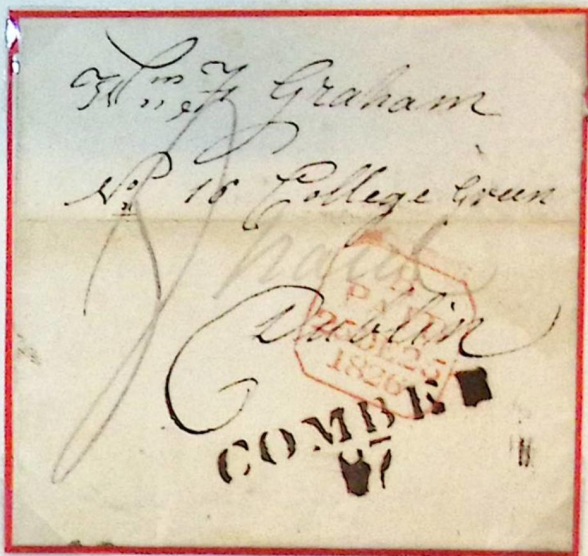 Wm F Graham
No 16 College Green
Paid
Dublin
PAID
1826
COMBER